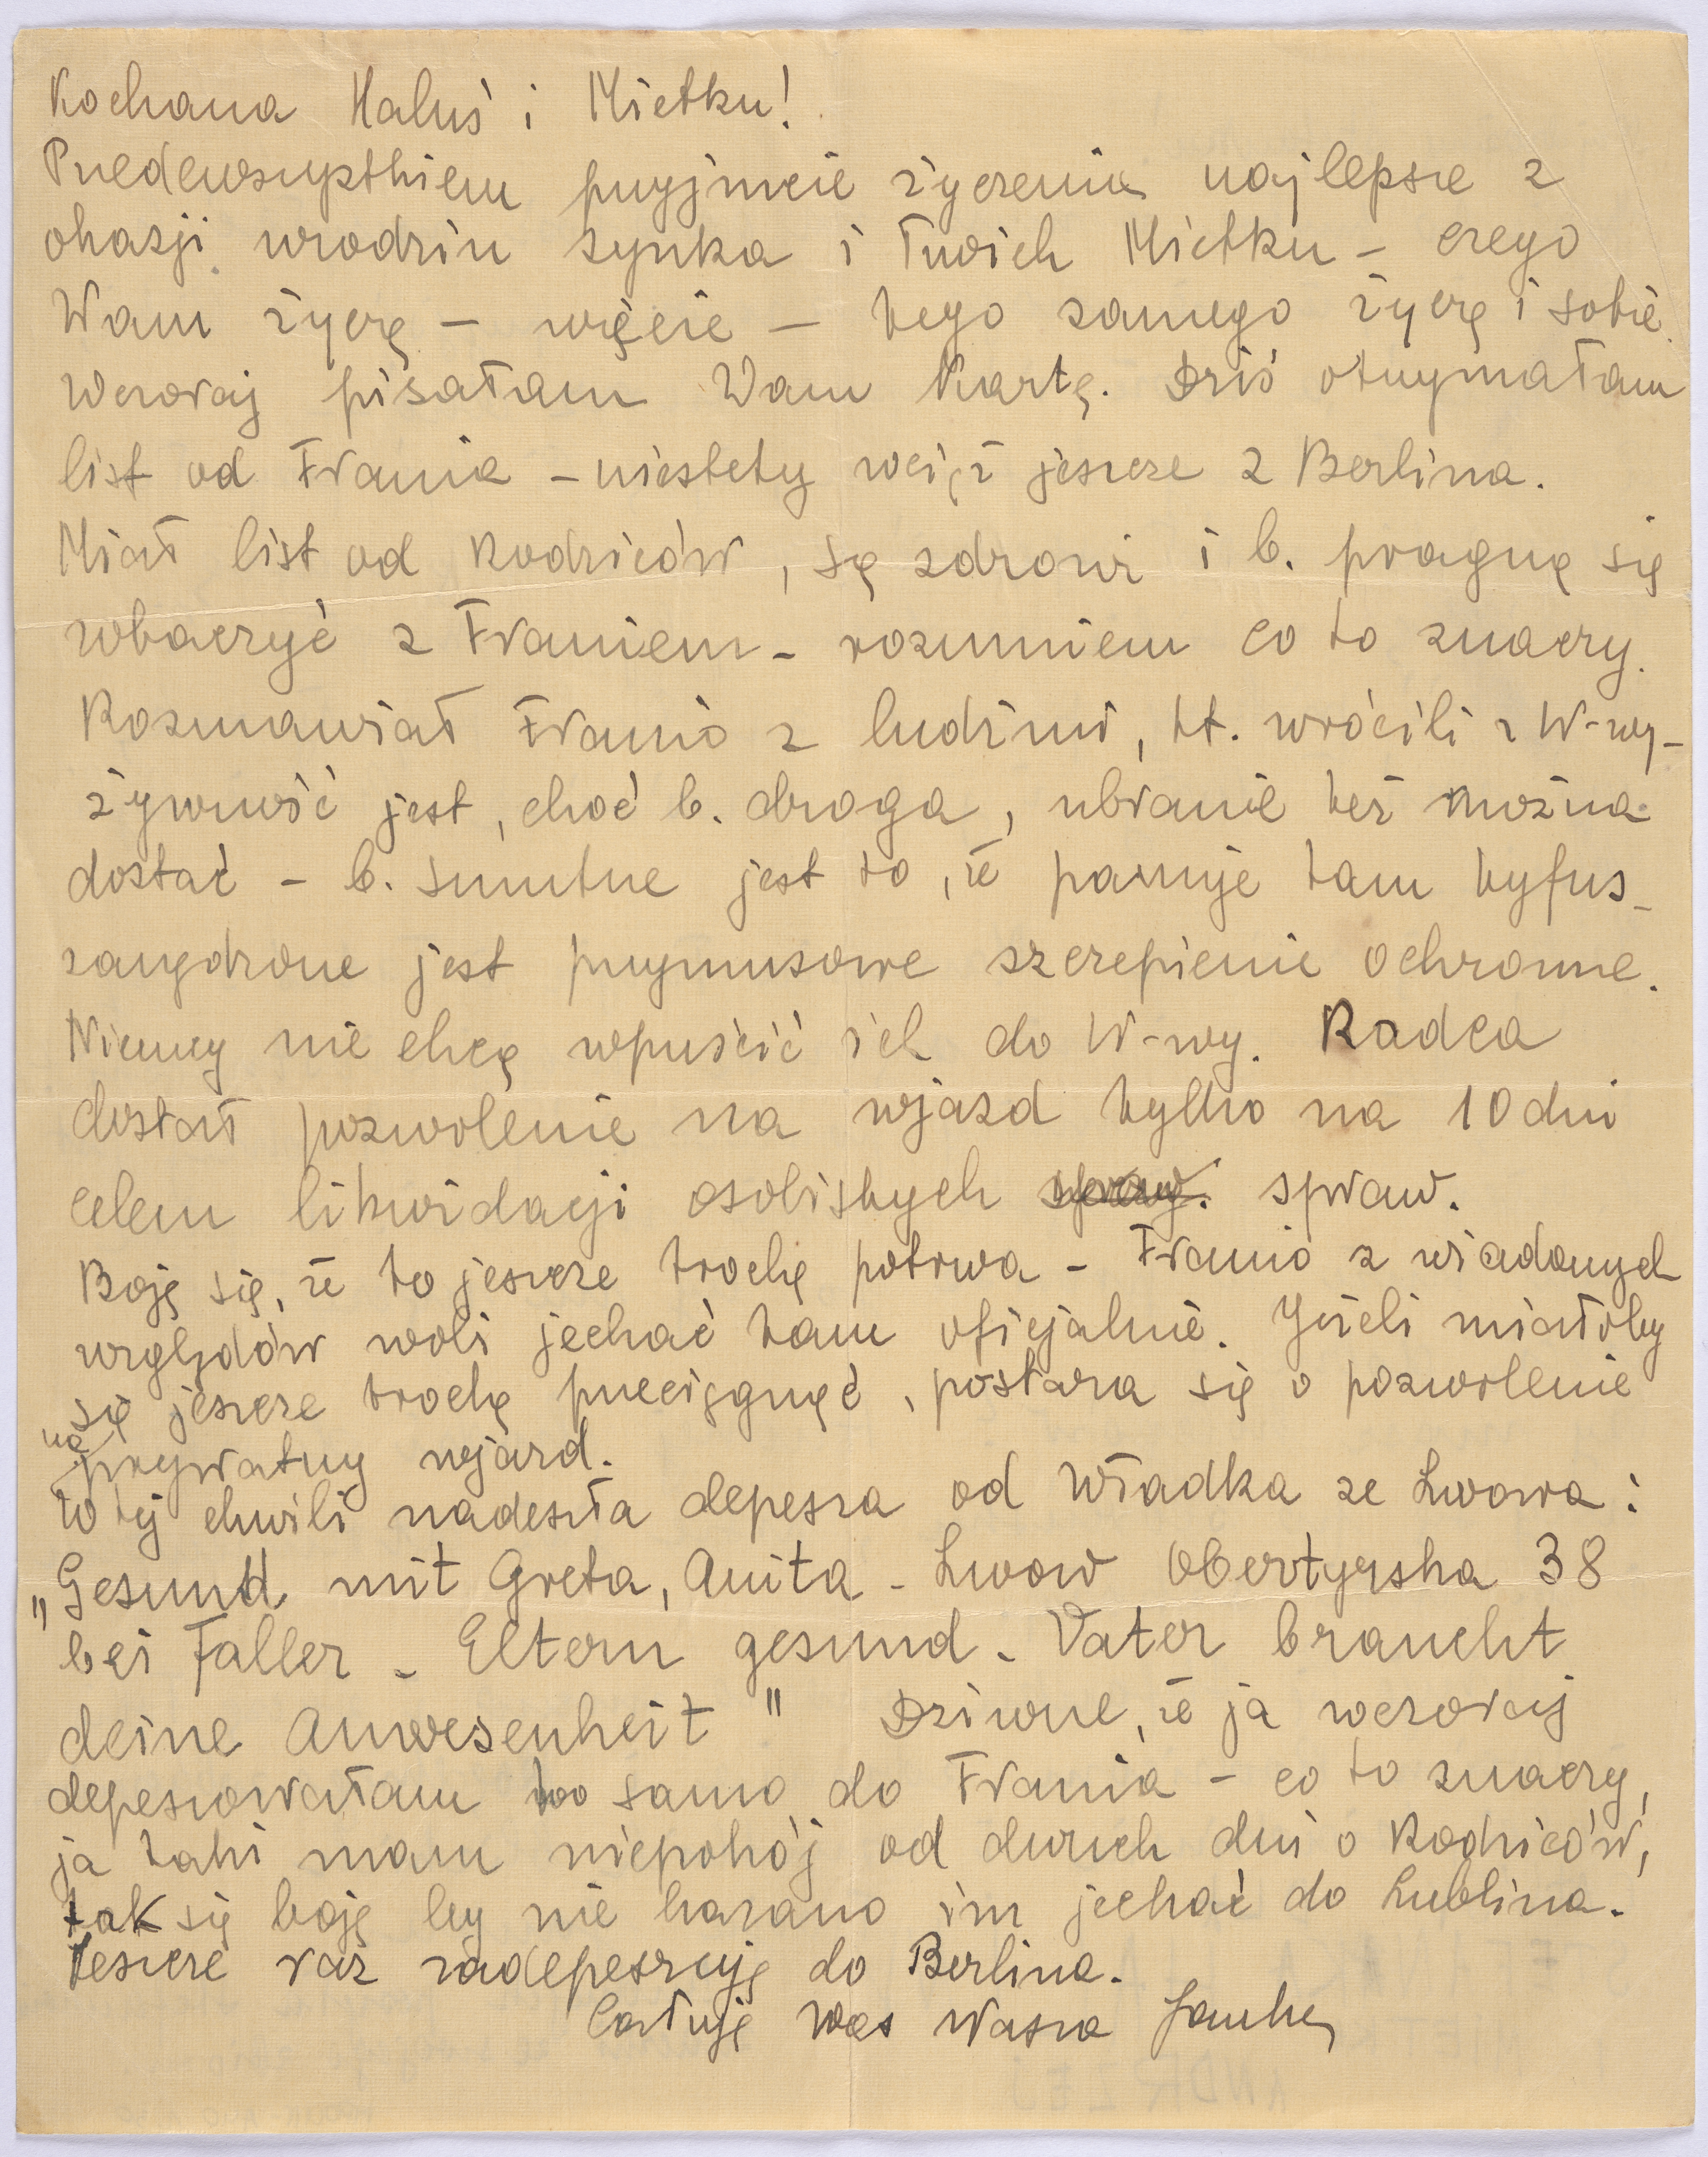 Kochana Haluś i Mietku!
Przedewszystkiem przyjmcie życzenia najlepsze z
okazji urodzin synka i Twoich Mietku – czego
Wam życzę – więcie – tego samego życzę i sobie.
Wczoraj pisałam Wam kartę. Dziś otrzymałam
list od Frania – niestety wciąż jeszcze z Berlina.
Miał list od Rodziców, są zdrowi i b. pragną się
zobaczyć z Franiem – rozumiem co to znaczy.
Rozmawiał Franio z ludźmi, kt. wrócili z W-wy –
żywność jest, choć b. droga, ubranie też można
dostać – b. smutne jest to, że panuje tam tyfus –
zarządzone jest przymusowe szczepienie ochronne.
Niemcy nie chcą wpuścić ich do W-wy. Radca
dostał pozwolenie na wjazd tylko na 10 dni
celem likwidacji osobistych spraw.
Boję się, że to jeszcze trochę potrwa – Franio z wiadomych
względów woli jechać tam oficjalnie. Jeżeli miałoby
się jeszcze trochę przeciągnąć, postara się o pozwolenie
na prywatny wjazd.
W tej chwili nadeszła depesza od Władka ze Lwowa:
„Gesund mit Greta, Anita – Lwow Obertyńska 38
bei Faller – Eltern gesund – Vater braucht
deine Anwesenheit" Dziwne, że ja wczoraj
depeszowałam to samo do Frania – co to znaczy,
ja taki mam niepokój od dwuch dni o Rodziców,
tak się boję by nie kazano im jechać do Lublina.
Jeszcze raz zadepeszuję do Berlina.
Całuję Was Wasza Janka